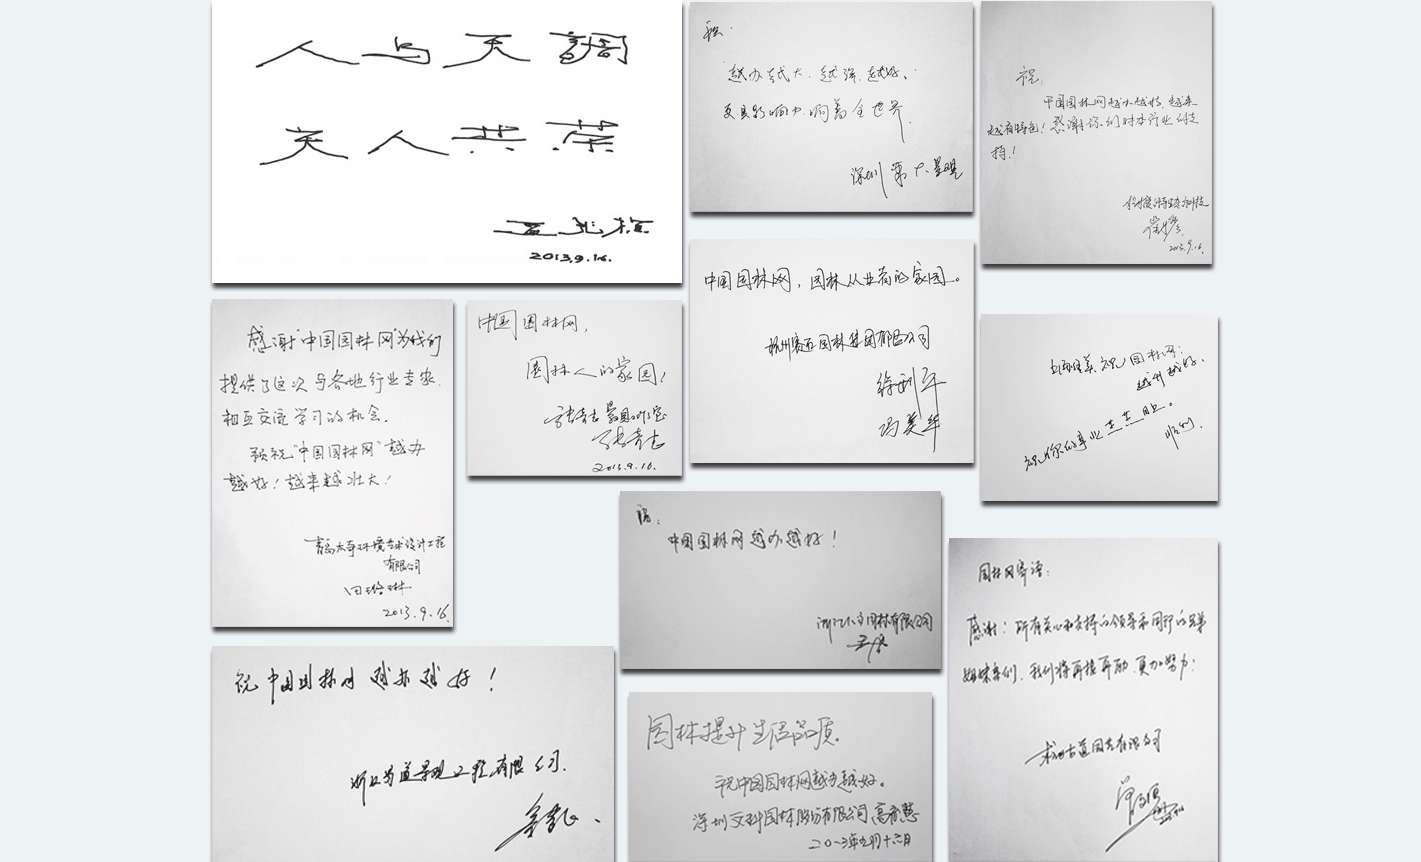 人与天調
天人共荣
2013.9.16.
祝:
越办越大、越强、越好。
更具影响力响誉全世界。
深圳
祝:
中国园林网越办越好,越来
越有特色!感谢你们对本行业的支
持!
2013.9.16
中国园林网,园林从业者的家园。
杭州赛石园林集团有限公司
感谢"中国园林网"为我们
提供了这次与各地行业专家
相互交流学习的机会。
预祝"中国园林网"越办
越好!越来越壮大!
青岛太奇环境艺术设计工程
有限公司
2013.9.16
中国园林网,
园林人的家园!
2013.9.16.
园林网:
越办越好。
祝你的事业蒸蒸日上。
祝:
中国园林网越办越好!
园林有限公司
园林网寄语:
感谢:所有关心和支持的领导和同行的兄弟
姐妹亲们,我们将再接再励,更加努力:
有限公司
祝中国园林网越办越好!
景观工程有限公司.
园林提升生活品质。
祝中国园林网越办越好。
深圳文科园林股份有限公司
二〇一三年九月十六日